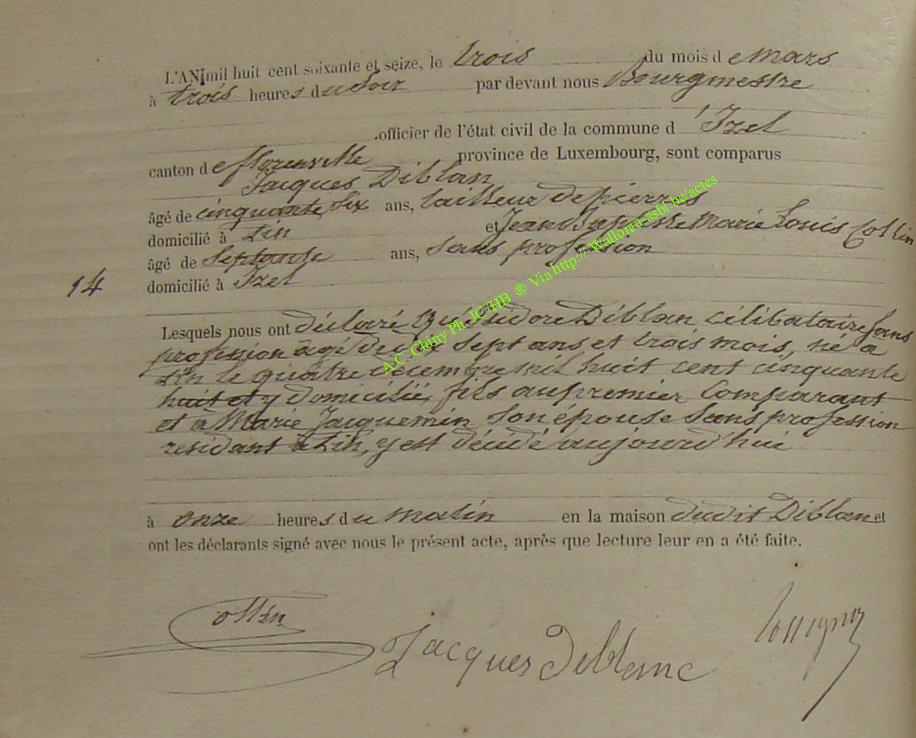 L'AN mil huit cent soixante et seize, le trois du mois de Mars
à trois heures du Soir par devant nous Bourgmestre
officier de l'état civil de la commune d'Izel
canton de florenville province de Luxembourg, sont comparus
Jacques Diblan
âgé de cinquante Six ans, tailleur de pierres
domicilié à Pin et Jean Baptiste Marie Louis Collin
âgé de Septante ans, Sans profession
14 domicilié à Izel
Lesquels nous ont déclaré qu'Isidore Diblan, célibataire, Sans
profession âgé de dix Sept ans et trois mois, né à
Pin le quatre décembre mil huit cent cinquante
huit et y domicilié, fils au premier Comparant
et à Marie Jacquemin Son épouse Sans profession
résidant à Pin, y est décédé aujourd'hui
à onze heures du Matin en la maison dudit Diblan et
ont les déclarants signé avec nous le présent acte, après que lecture leur en a été faite.
Collin
Jacques Deblanc
A.C. Chiny Ph. JC HB ® Via http://wallonia-asbl.be/actes